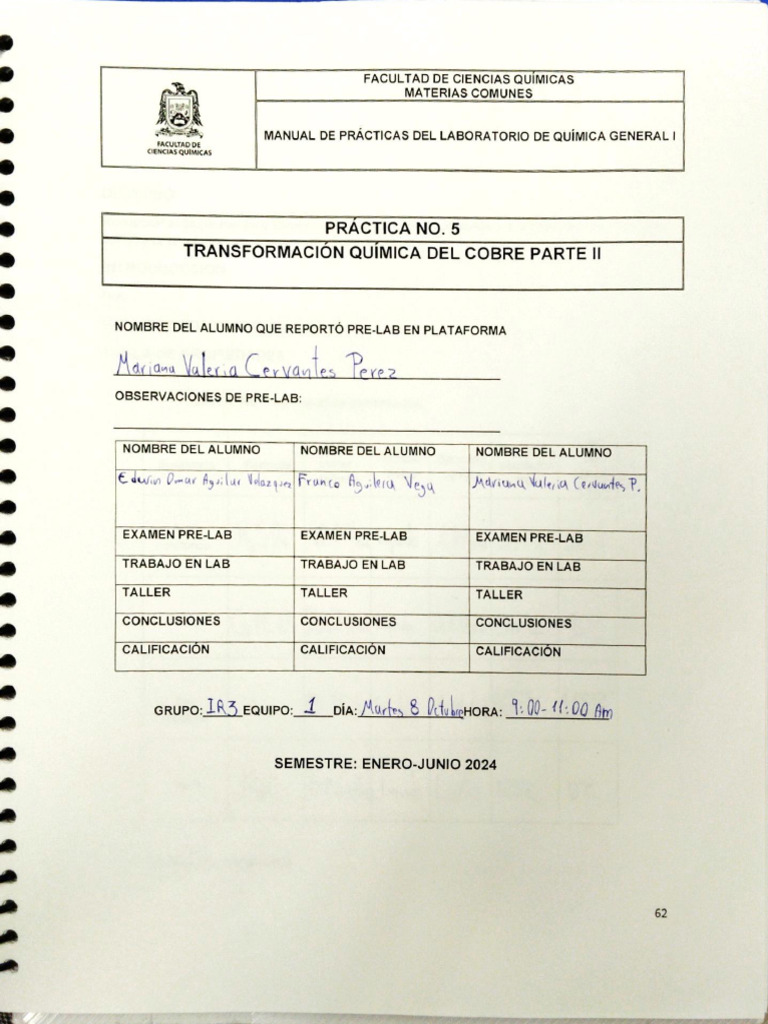 FACULTAD DE CIENCIAS QUÍMICAS
MATERIAS COMUNES
FACULTAD DE
CIENCIAS QUÍMICAS
MANUAL DE PRÁCTICAS DEL LABORATORIO DE QUÍMICA GENERAL I
PRÁCTICA NO. 5
TRANSFORMACIÓN QUÍMICA DEL COBRE PARTE II
NOMBRE DEL ALUMNO QUE REPORTÓ PRE-LAB EN PLATAFORMA
Mariana Valeria Cervantes Perez
OBSERVACIONES DE PRE-LAB:
NOMBRE DEL ALUMNO NOMBRE DEL ALUMNO NOMBRE DEL ALUMNO
Edwin Omar Aguilar Velazquez Franco Aguilera Vega Mariana Valeria Cervantes P.
EXAMEN PRE-LAB EXAMEN PRE-LAB EXAMEN PRE-LAB
TRABAJO EN LAB TRABAJO EN LAB TRABAJO EN LAB
TALLER TALLER TALLER
CONCLUSIONES CONCLUSIONES CONCLUSIONES
CALIFICACIÓN CALIFICACIÓN CALIFICACIÓN
GRUPO: IA3 EQUIPO: 1 DÍA: Martes 8 Octubre HORA: 9:00-11:00 Am
SEMESTRE: ENERO-JUNIO 2024
62